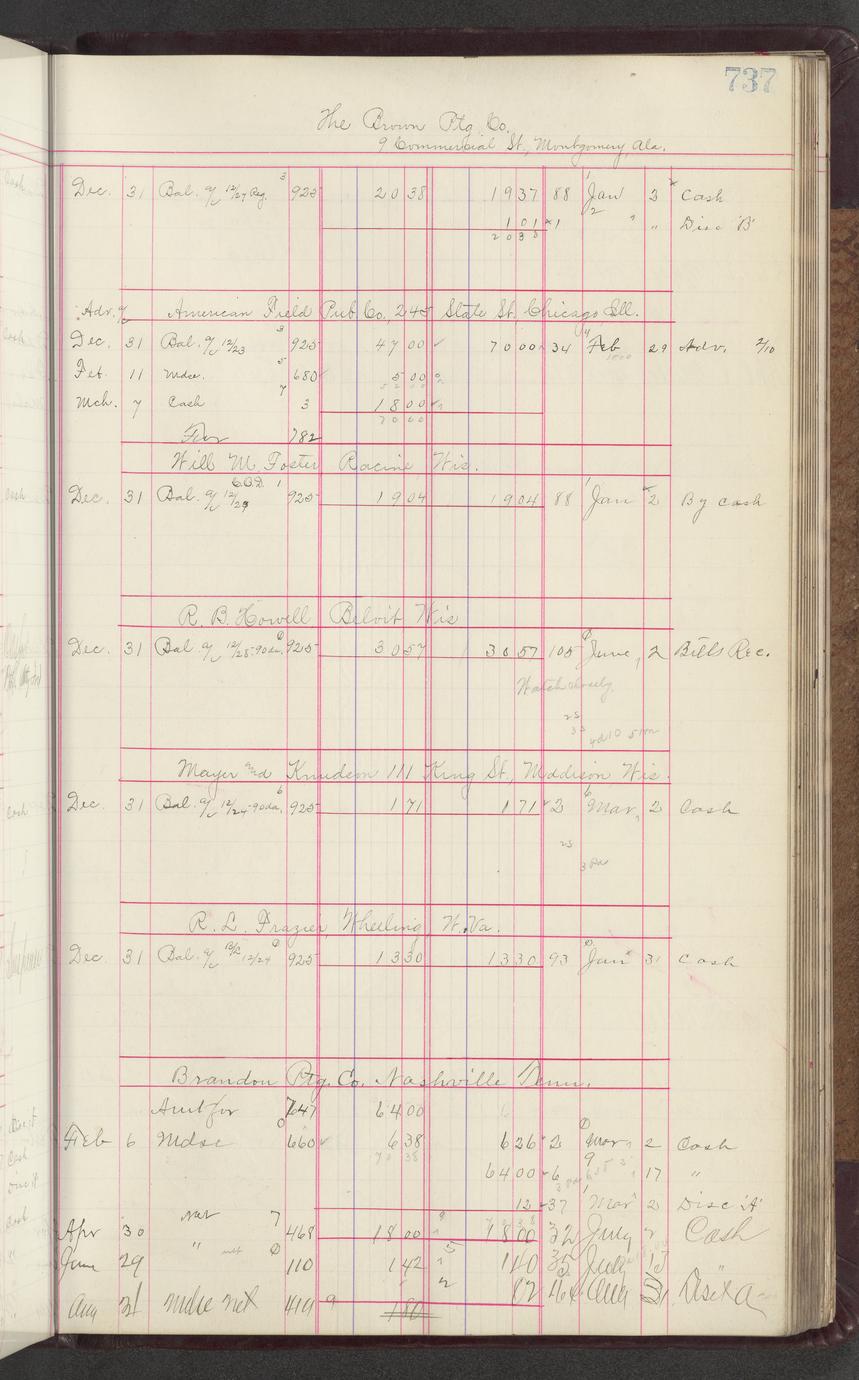 737
The Brown Ptg. Co.
9 Commercial St., Montgomery, Ala.
Dec. 31 Bal. a/c 12/27 Reg. 3 925 20 38 19 37 88 1 Jan 3 Cash
1 01 1 2 " " Disc 'B'
20 38
Adv. a/c American Field Pub Co., 245 State St. Chicago Ill.
Dec. 31 Bal. a/c 12/23 3 925 47 00 70 00 34 4 Feb 29 Adv. 2/10
Feb. 11 Mdse. 5 680 5 00
52 00
Mch. 7 Cash 7 3 18 00
70 00
For 782
Will M. Foster Racine Wis.
Dec. 31 Bal. a/c 12/29 C.O.D. 1 925 19 04 19 04 88 1 Jan 2 By cash
R. B. Howell Beloit Wis
Dec. 31 Bal. a/c 12/28-90da. 925 30 57 30 57 105 June 2 Bills Rec.
Watch closely
25
35
Mayer and Knudson 111 King St., Maddison Wis.
Dec. 31 Bal. a/c 12/24-90da. 6 925 1 71 1 71 2 6 Mar 2 Cash
25
R. L. Frazier, Wheeling, W. Va.
Dec 31 Bal. a/c B/L 12/24 925 13 30 13 30 93 Jan 31 Cash
Brandon Ptg. Co. Nashville Tenn.
Amt for 647 64 00
Feb 6 Mdse 660 6 38 6 26 2 Mar 2 Cash
70 38
64 00 6 9 " 17 "
12 37 1 Mar 2 Disc 'A'
Apr 30 net 7 468 18 00 18 00 32 July 2 Cash
June 29 " net 110 1 42 1 40 35 July "
Aug 31 Mdse net 419 9 1 80 02 Aug 31 Disct A